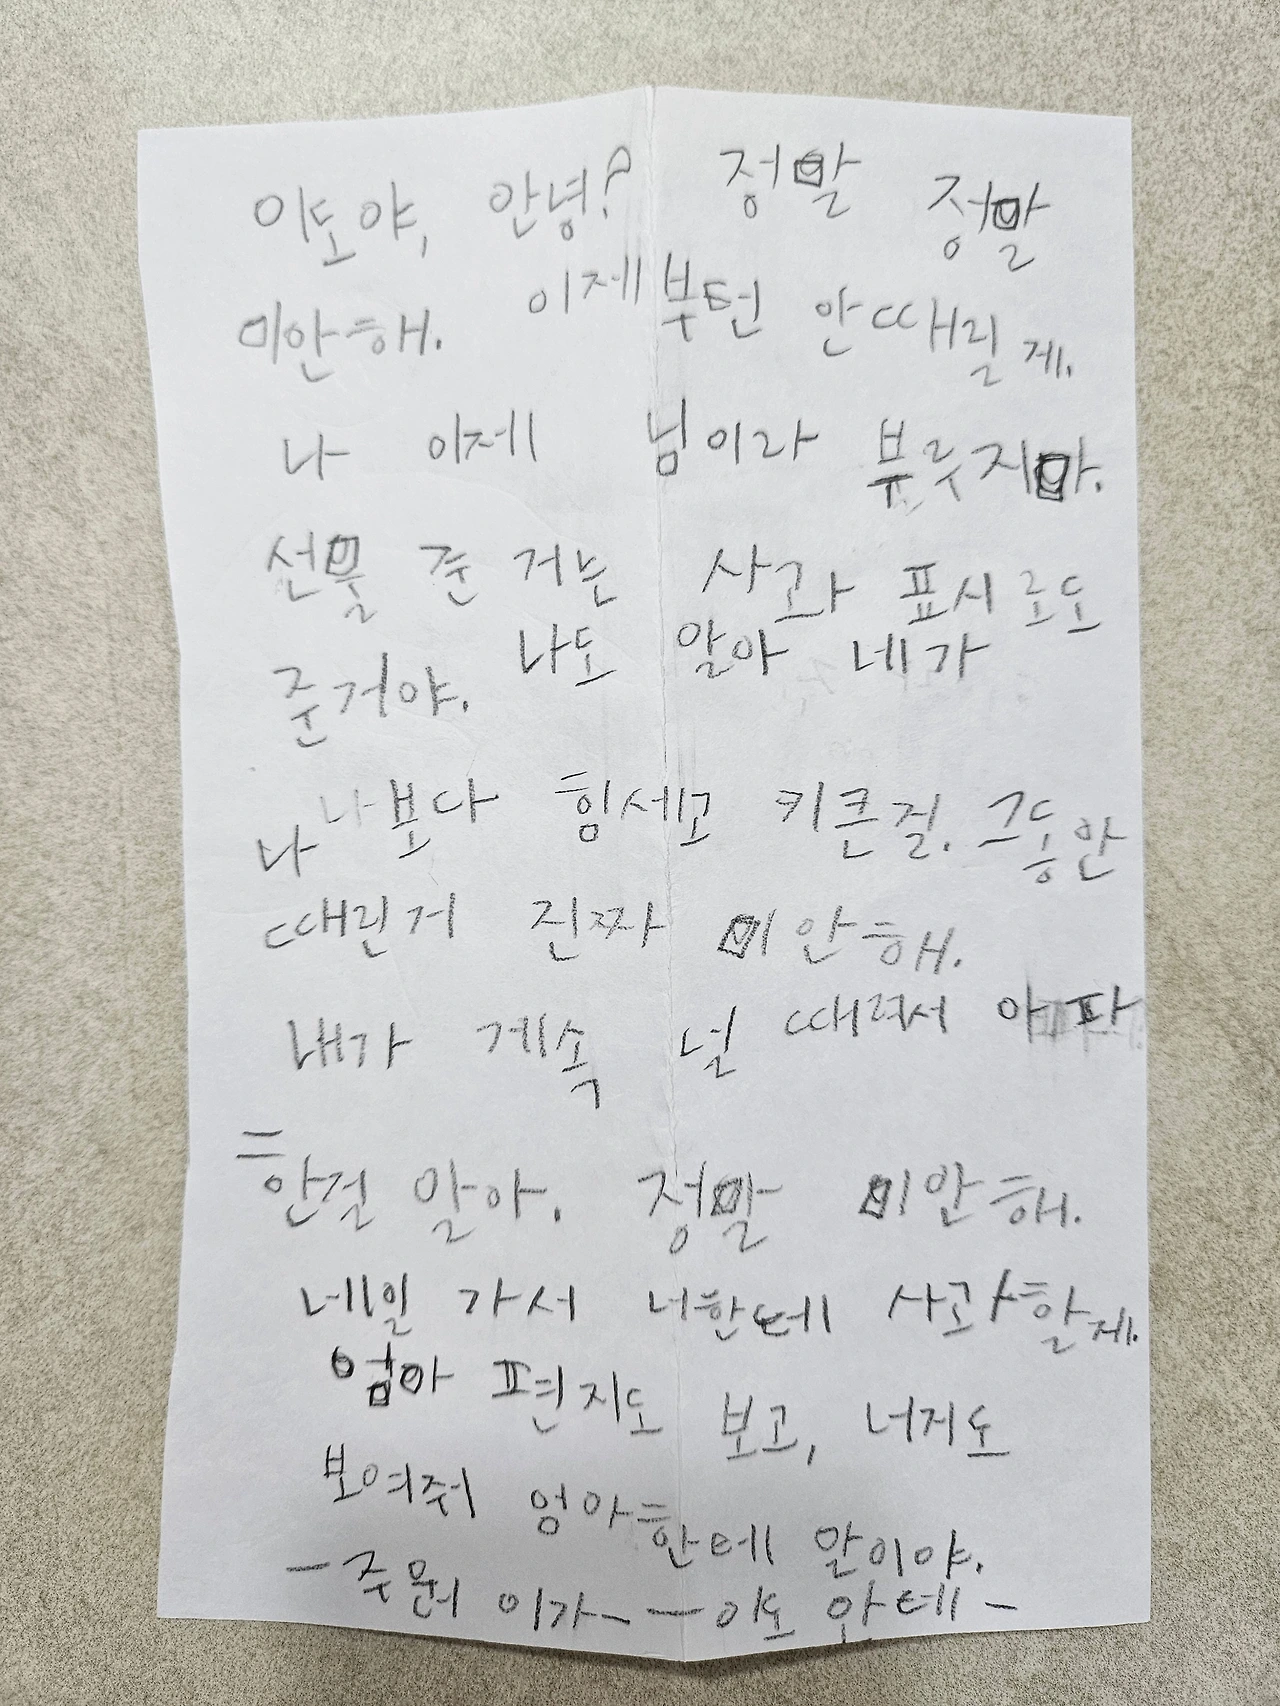 이도야, 안녕? 정말 정말
미안해. 이제부턴 안때릴게.
나 이제 님이라 부루지마.
선물 준 거는 사과 표시로도
준거야. 나도 알아 네가
나 나보다 힘세고 키큰걸. 그동안
때린거 진짜 미안해.
내가 게속 널 때려서 아파
한걸 알아. 정말 미안해.
네일 가서 너한테 사과할게.
엄마 편지도 보고, 너지도
보여줘 엄마한테 말이야.
-주원이가- -이도 한테-